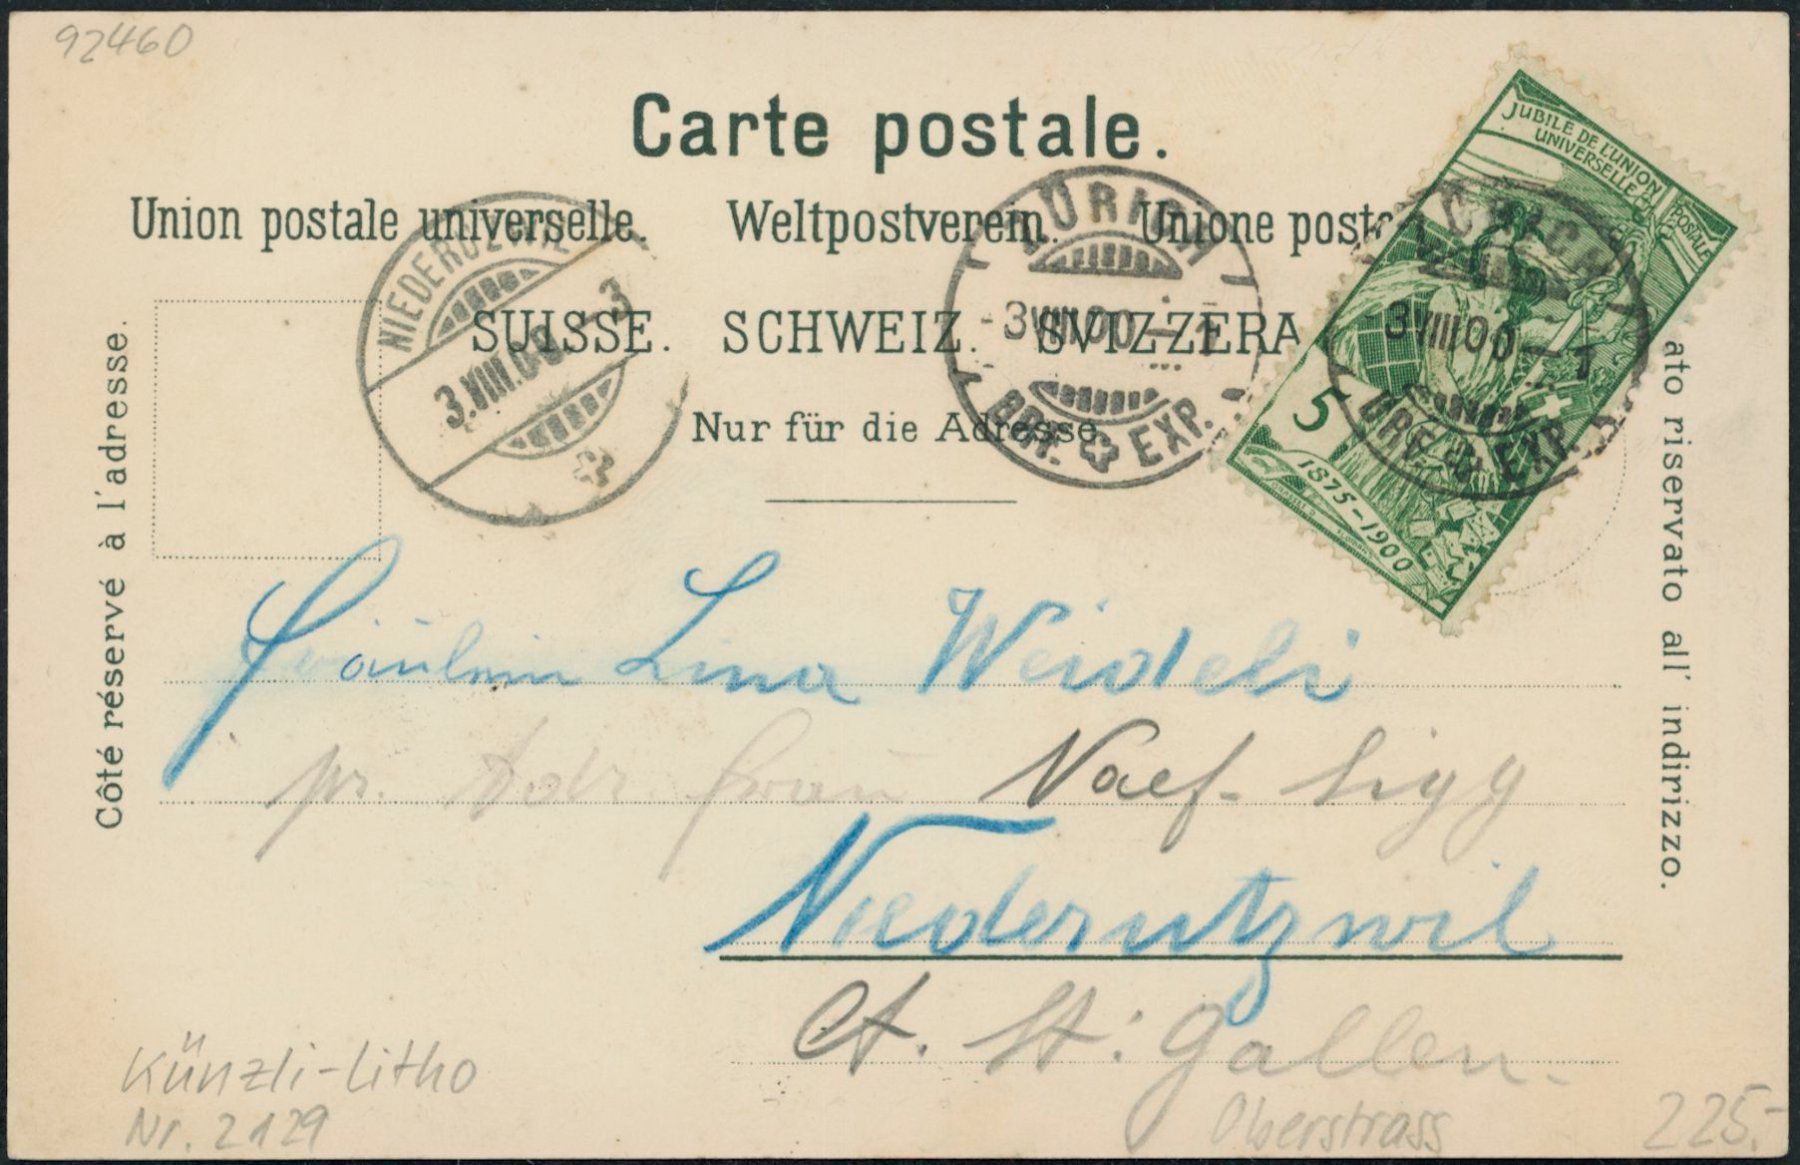 92460
Carte postale.
Union postale universelle. Weltpostverein. Unione posta
SUISSE. SCHWEIZ. SVIZZERA
Nur für die Adresse.
Côté réservé à l'adresse.
ato riservato all' indirizzo.
JUBILE DE L'UNION
UNIVERSELLE
POSTALE
5
1875-1900
NIEDERUZWIL
3.VIII.00-3
ZÜRICH
-3.VIII.00-1
BRF. EXP.
ZÜRICH
3.VIII.00-1
BRF. EXP.
Fräulein Lina Weideli
pr. Adr. Frau Naef-Sigg
Niederutzwil
Ct. St. Gallen.
Künzli-Litho
Nr. 2129
Oberstrass
225.-